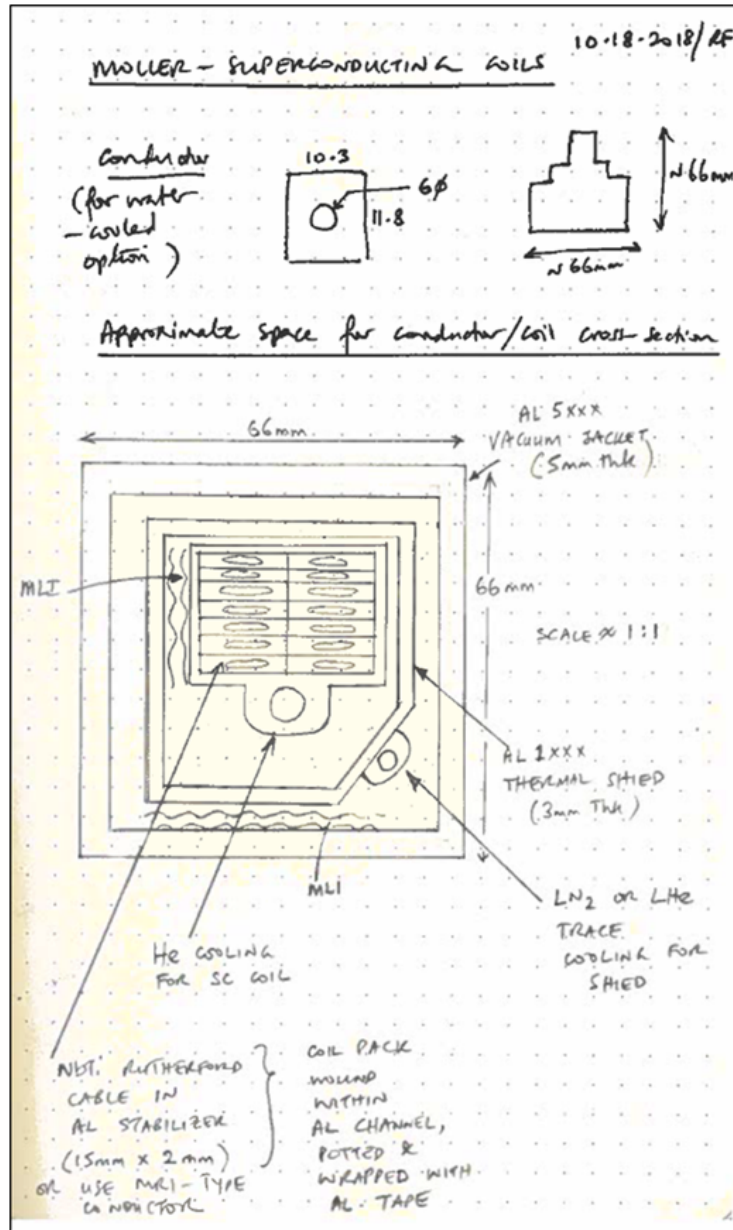 10-18-2018/RF
MOLLER - SUPERCONDUCTING COILS
Conductor
(for water
-cooled
option)
10.3
6φ
11.8
~66mm
~66mm
Approximate space for conductor/coil cross-section
66mm
AL 5XXX
VACUUM JACKET
(5mm thk)
MLI
66mm
SCALE ≈ 1:1
AL 1XXX
THERMAL SHIED
(3mm Thk)
MLI
LN2 OR LHe
TRACE
COOLING FOR
SHIED
He COOLING
FOR SC COIL
NbTi RUTHERFORD
CABLE IN
AL STABILIZER
(15mm x 2mm)
OR USE MRI-TYPE
CONDUCTOR
COIL PACK
WOUND
WITHIN
AL CHANNEL,
POTTED &
WRAPPED WITH
AL. TAPE